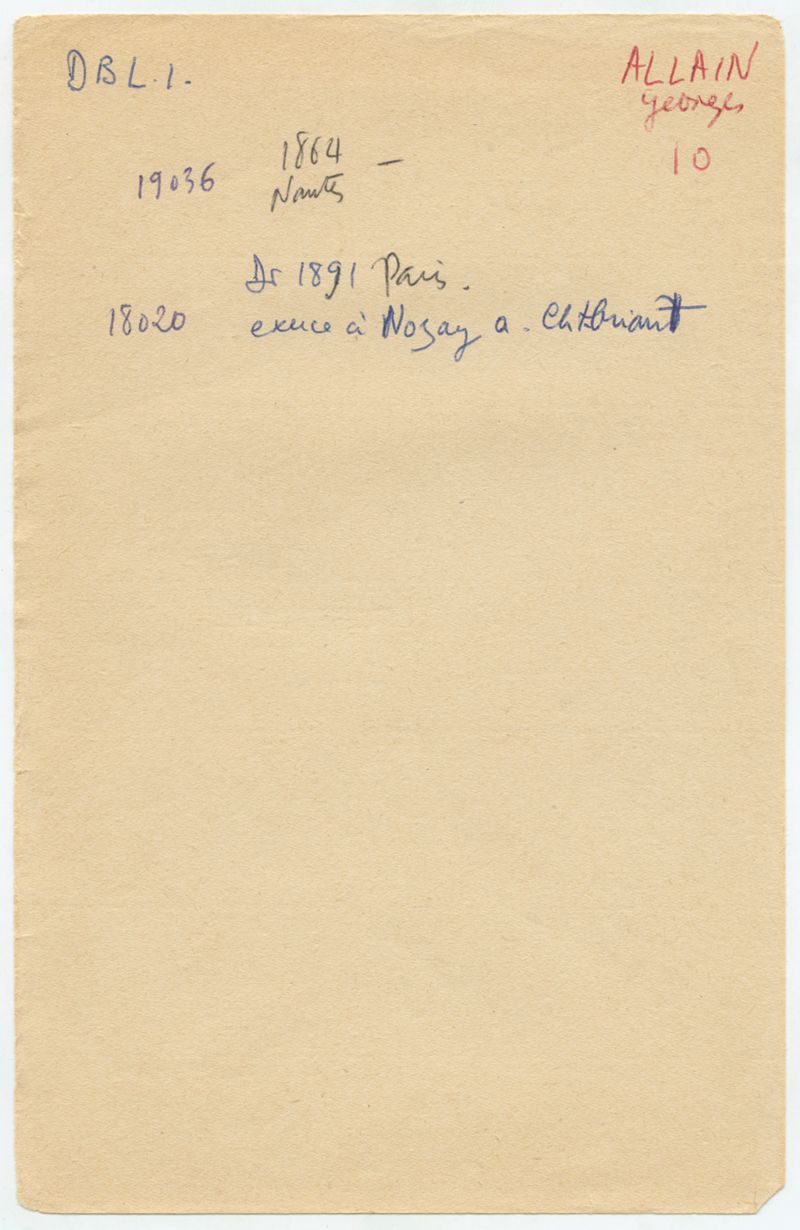 DBL.1.
ALLAIN
Georges
10
19036 1864 -
Nantes
Dr 1891 Paris.
18020 exerce à Nozay a. Chtbriant